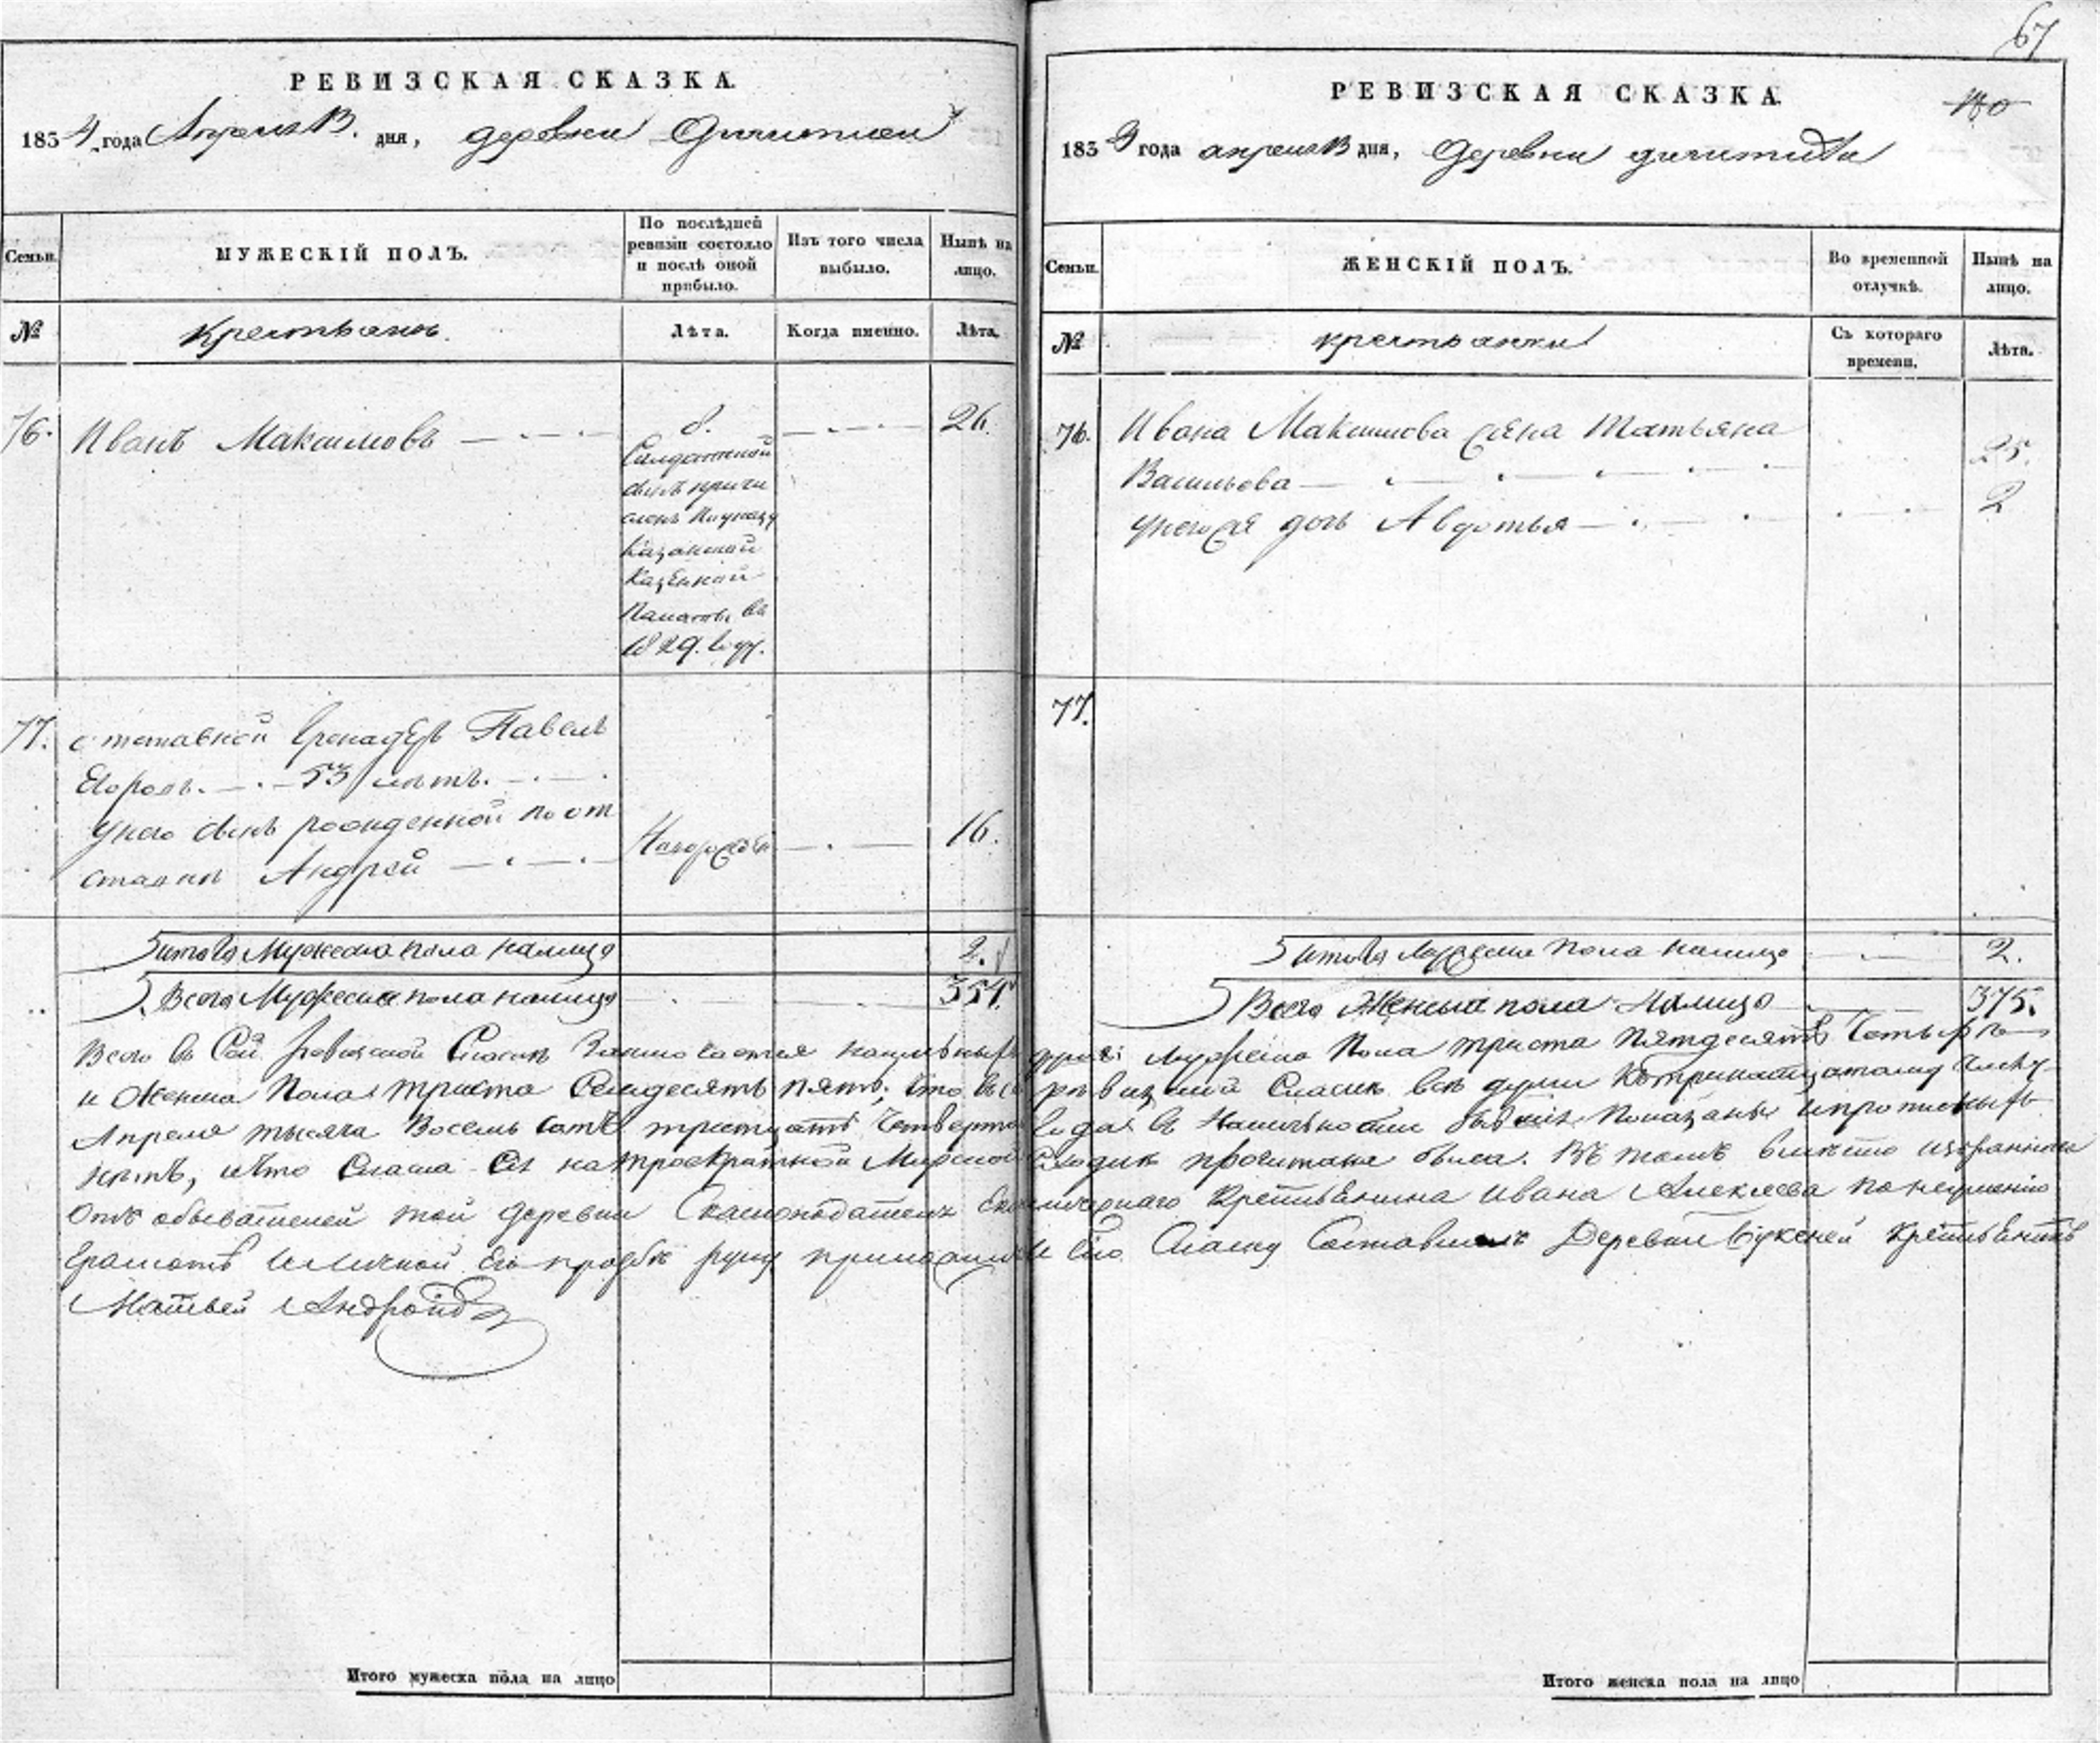 67
РЕВИЗСКАЯ СКАЗКА.
1834 года Апреля 13. дня, деревни
Семьи.
МУЖЕСКІЙ ПОЛЪ.
По послѣдней ревизіи состояло и послѣ оной прибыло.
Изъ того числа выбыло.
Нынѣ на лицо.
№
Крестьянъ.
Лѣта.
Когда именно.
Лѣта.
76. Иванъ Максимовъ 8. 26.
Солдатской
сынъ причи
сленъ по указу
Казанской
Казенной
Палаты въ
1829. году.
77. отставной Гренадеръ Павелъ
53 летъ.
унего сынъ рожденной по от
ставки Андрей 16.
итого Мужеска пола налицо 2.
Всего Мужеска пола налицо 354.
РЕВИЗСКАЯ СКАЗКА.
1834 года апреля 13 дня, деревни
Семьи.
ЖЕНСКІЙ ПОЛЪ.
Во временной отлучкѣ.
Нынѣ на лицо.
№
крестьянки
Съ котораго времени.
Лѣта.
76. Ивана Максимова жена Татьяна
Васильева 25.
унегоже дочь Авдотья 2
77.
итого пола налицо 2.
Всего Женска пола налицо 375.
Всего въ сей ревизской Сказке Заключается наличныхъ душъ Мужеска Пола триста Пятдесятъ Четыре
и Женска Пола триста Семдесятъ пять, что въ сей ревизской Сказке все души Къ тринатцатому числу
Апреля тысяча Восемь сотъ тритцать Четвертаго Года въ Наличности бывшие Показаны и прописныхъ
нетъ, и что Сказка сія на троекратной Мирской сходке прочитана была. Въ томъ вместо избранного
Отъ обывателей той деревни Сказкоподателя Крестьянина Ивана Алексеева по неумению
Грамоте и личной Его прозбе руку приложилъ и Сію Сказку Составилъ Деревни Крестьянинъ
Матвей
Итого мужеска пола на лицо
Итого женска пола на лицо